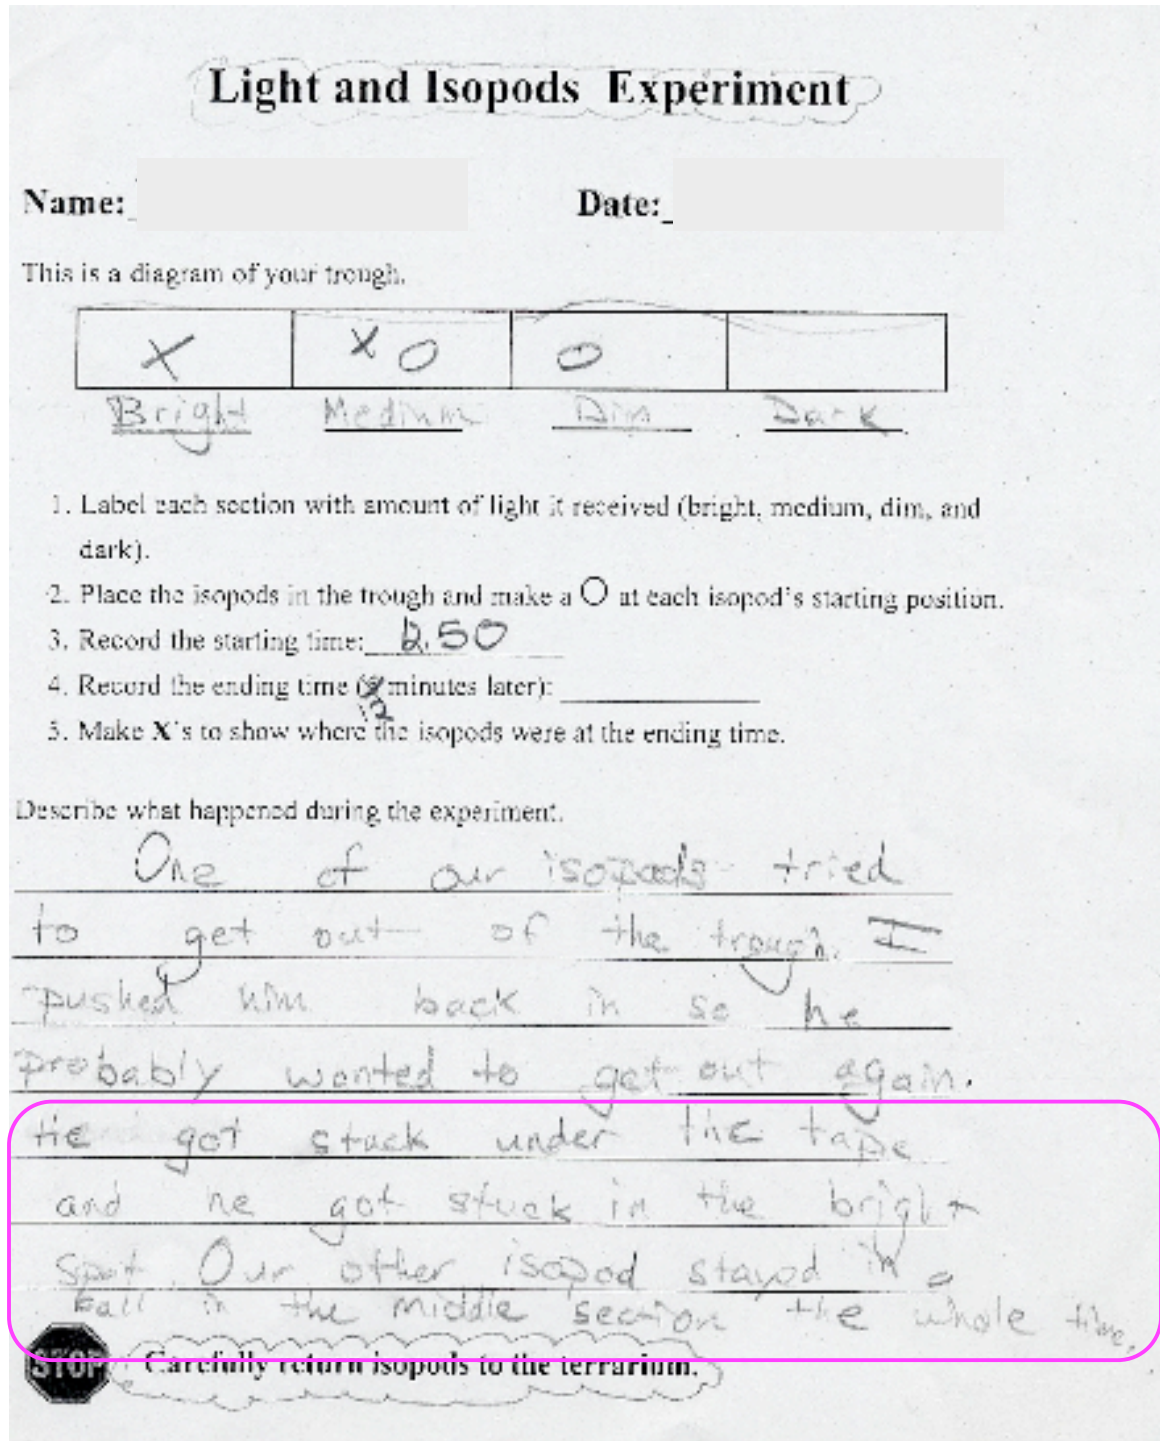 Light and Isopods Experiment
Name:
Date:
This is a diagram of your trough.
X X O O
Bright Medium Dim Dark
1. Label each section with amount of light it received (bright, medium, dim, and
dark).
2. Place the isopods in the trough and make a O at each isopod's starting position.
3. Record the starting time: 50
4. Record the ending time ( minutes later):
5. Make X's to show where the isopods were at the ending time.
Describe what happened during the experiment.
One of our isopods tried
to get out of the trough. I
pushed him back in so he
probably wanted to get out again.
He got stuck under the tape
and he got stuck in the bright
spot Our other isopod stayed in a
ball in the middle section the whole time.
STOP Carefully return isopods to the terrarium.